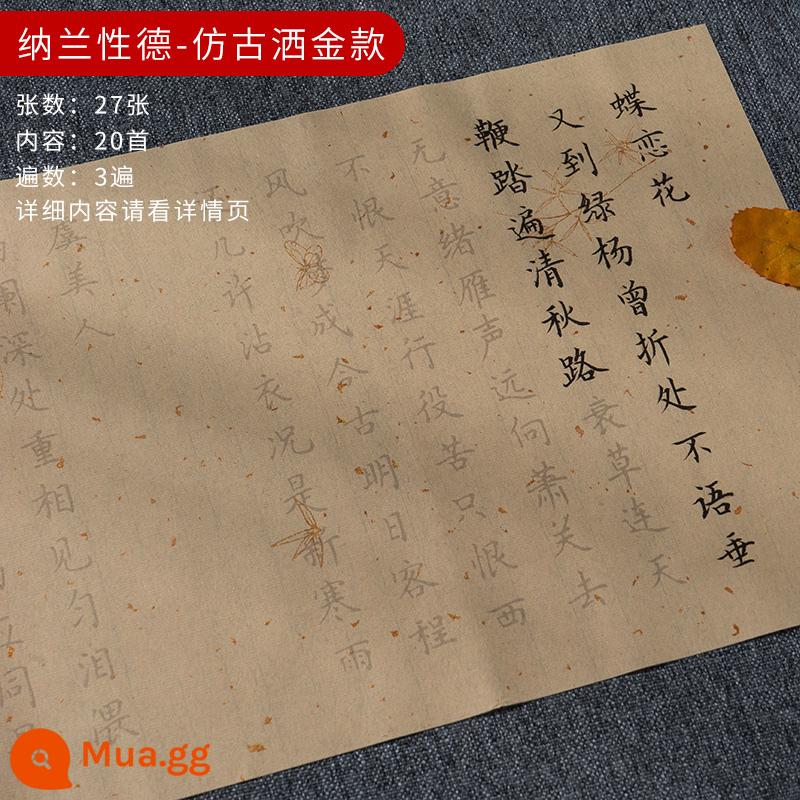 纳兰性德-仿古洒金款
张数：27张
内容：20首
遍数：3遍
详细内容请看详情页
蝶恋花
又到绿杨曾折处不语垂
鞭踏遍清秋路衰草连天
无意绪雁声远向萧关去
不恨天涯行役苦只恨西
风吹梦成今古明日客程
几许沾衣况是新寒雨
虞美人
阑深处重相见匀泪偎
同
Mua.gg